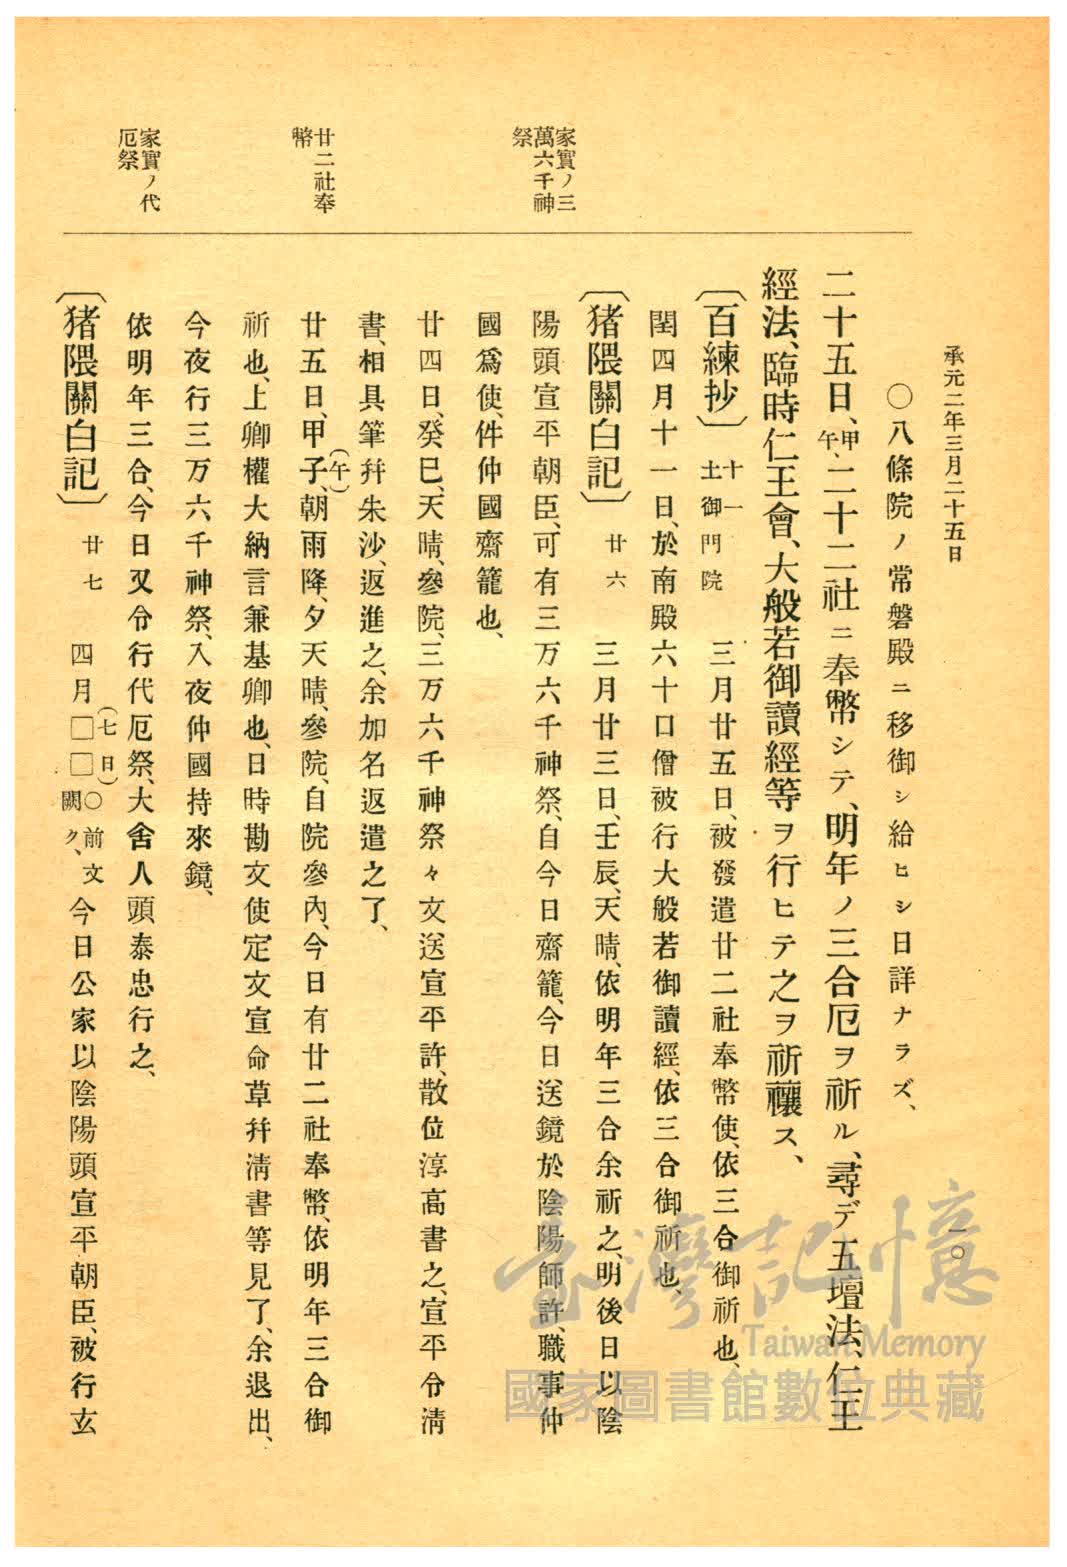 承元二年三月二十五日
一〇
〇八條院ノ常磐殿ニ移御シ給ヒシ日詳ナラズ、
二十五日、甲午、二十二社ニ奉幣シテ、明年ノ三合厄ヲ祈ル、尋デ五壇法、仁王
經法、臨時仁王會、大般若御讀經等ヲ行ヒテ之ヲ祈禳ス、
〔百練抄〕 十一 土御門院 三月廿五日、被發遣廿二社奉幣使、依三合御祈也、
閏四月十一日、於南殿六十口僧被行大般若御讀經、依三合御祈也、
〔猪隈關白記〕 廿六 三月廿三日、壬辰、天晴、依明年三合余祈之、明後日以陰
陽頭宣平朝臣、可有三万六千神祭、自今日齋籠、今日送鏡於陰陽師許、職事仲
國爲使、件仲國齋籠也、
廿四日、癸巳、天晴、參院、三万六千神祭々文送宣平許、散位淳高書之、宣平令淸
書、相具筆幷朱沙、返進之、余加名返遣之了、
廿五日、甲子(午)、朝雨降、夕天晴、參院、自院參內、今日有廿二社奉幣、依明年三合御
祈也、上卿權大納言兼基卿也、日時勘文使定文宣命草幷淸書等見了、余退出、
今夜行三万六千神祭、入夜仲國持來鏡、
依明年三合、今日又令行代厄祭、大舍人頭泰忠行之、
〔猪隈關白記〕 廿七 四月□□(七日)〇前文闕ク、今日公家以陰陽頭宣平朝臣、被行玄
家實ノ三
萬六千神
祭
廿二社奉
幣
家實ノ代
厄祭
臺灣記憶
Taiwan Memory
國家圖書館數位典藏